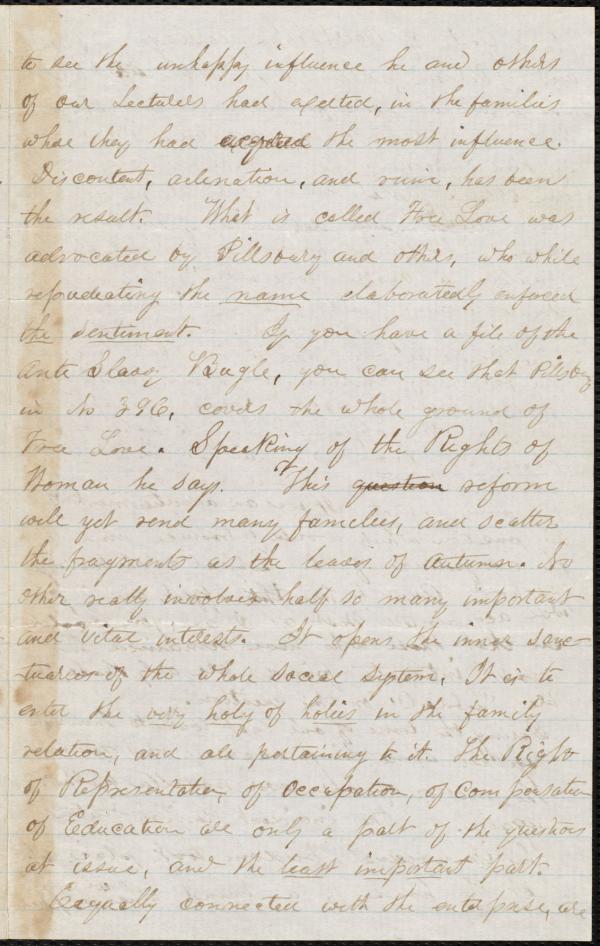 to see the unhappy influence he and others
of our Lecturers had exerted, in the families
where they had acquired the most influence.
Discontent, alienation, and ruin, has been
the result. What is called Free Love was
advocated by Pillsbury and others, who while
repudiating the name elaboratedly enforced
the sentiment. If you have a file of the
Anti Slavy Bugle, you can see that Pillsbury
in No 396, covers the whole ground of
Free Love. Speaking of the Rights of
Woman he says. "This question reform
will yet rend many families, and scatter
the fragments as the leaves of Autumn. No
other really involves half so many important
and vital interests. It opens the inner sanc-
tuaries of the whole social system, It is to
enter the very holy of holies in the family
relation, and all pertaining to it. The Right
of Representation, of Occupation, of Compensation
of Education are only a part of the questions
at issue, and the least important part.
Eequally connected with the enterprise, are